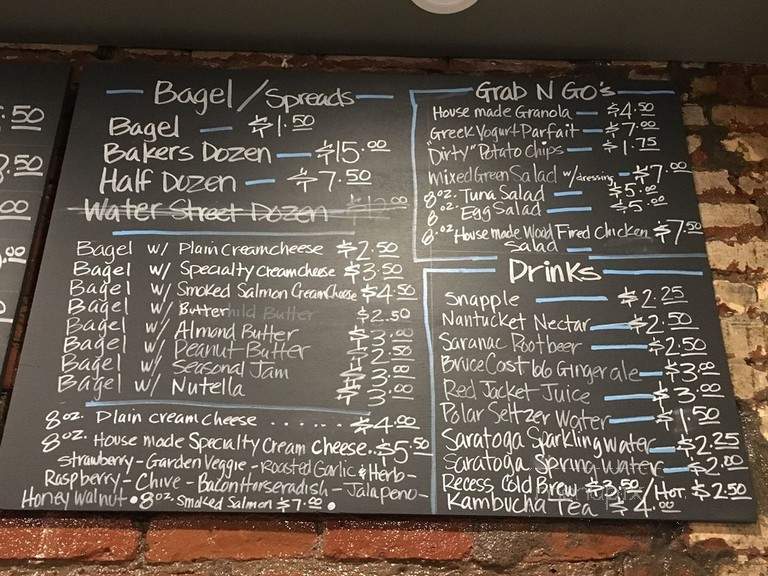 .50
3.50
.00
.00
Bagel / Spreads
Bagel — $1.50
Bakers Dozen — $15.00
Half Dozen — $7.50
Water Street Dozen
Bagel w/ Plain Creamcheese $2.50
Bagel w/ Specialty creamcheese $3.50
Bagel w/ Smoked Salmon CreamCheese $4.50
Bagel w/ Butter $2.50
Bagel w/ Almond Butter $3.00
Bagel w/ Peanut Butter $2.50
Bagel w/ Seasonal Jam $3.00
Bagel w/ Nutella $3.00
8oz. Plain cream cheese ...... $4.00
8oz. House made Specialty Cream Cheese.. $5.50
strawberry - Garden Veggie - Roasted Garlic & Herb -
Raspberry - Chive - Bacon Horseradish - Jalapeno -
Honey Walnut • 8oz. Smoked Salmon $7.00 •
Grab N Go's
House made Granola — $4.50
Greek Yogurt Parfait — $7.00
"Dirty" Potato Chips — $1.75
Mixed Green Salad w/dressing — $7.00
8oz. Tuna Salad — $5.00
8oz. Egg Salad — $5.00
8oz. House made Wood Fired Chicken $7.50
Salad
Drinks
Snapple — $2.25
Nantucket Nectar — $2.50
Saranac Rootbeer — $2.50
Bruce Cost 66 Ginger ale — $3.00
Red Jacket Juice — $3.00
Polar Seltzer Water — $1.50
Saratoga Sparkling water — $2.25
Saratoga Spring Water — $2.00
Recess Cold Brew $3.50 / Hot $2.50
Kombucha Tea $4.00